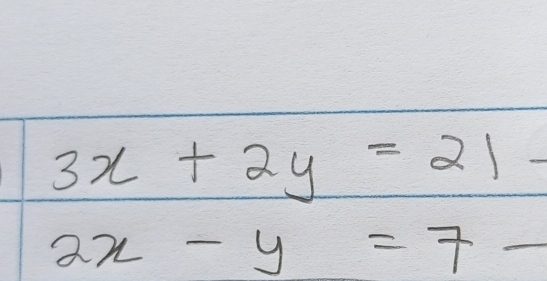 3x + 2y = 21 -
2x - y = 7 -